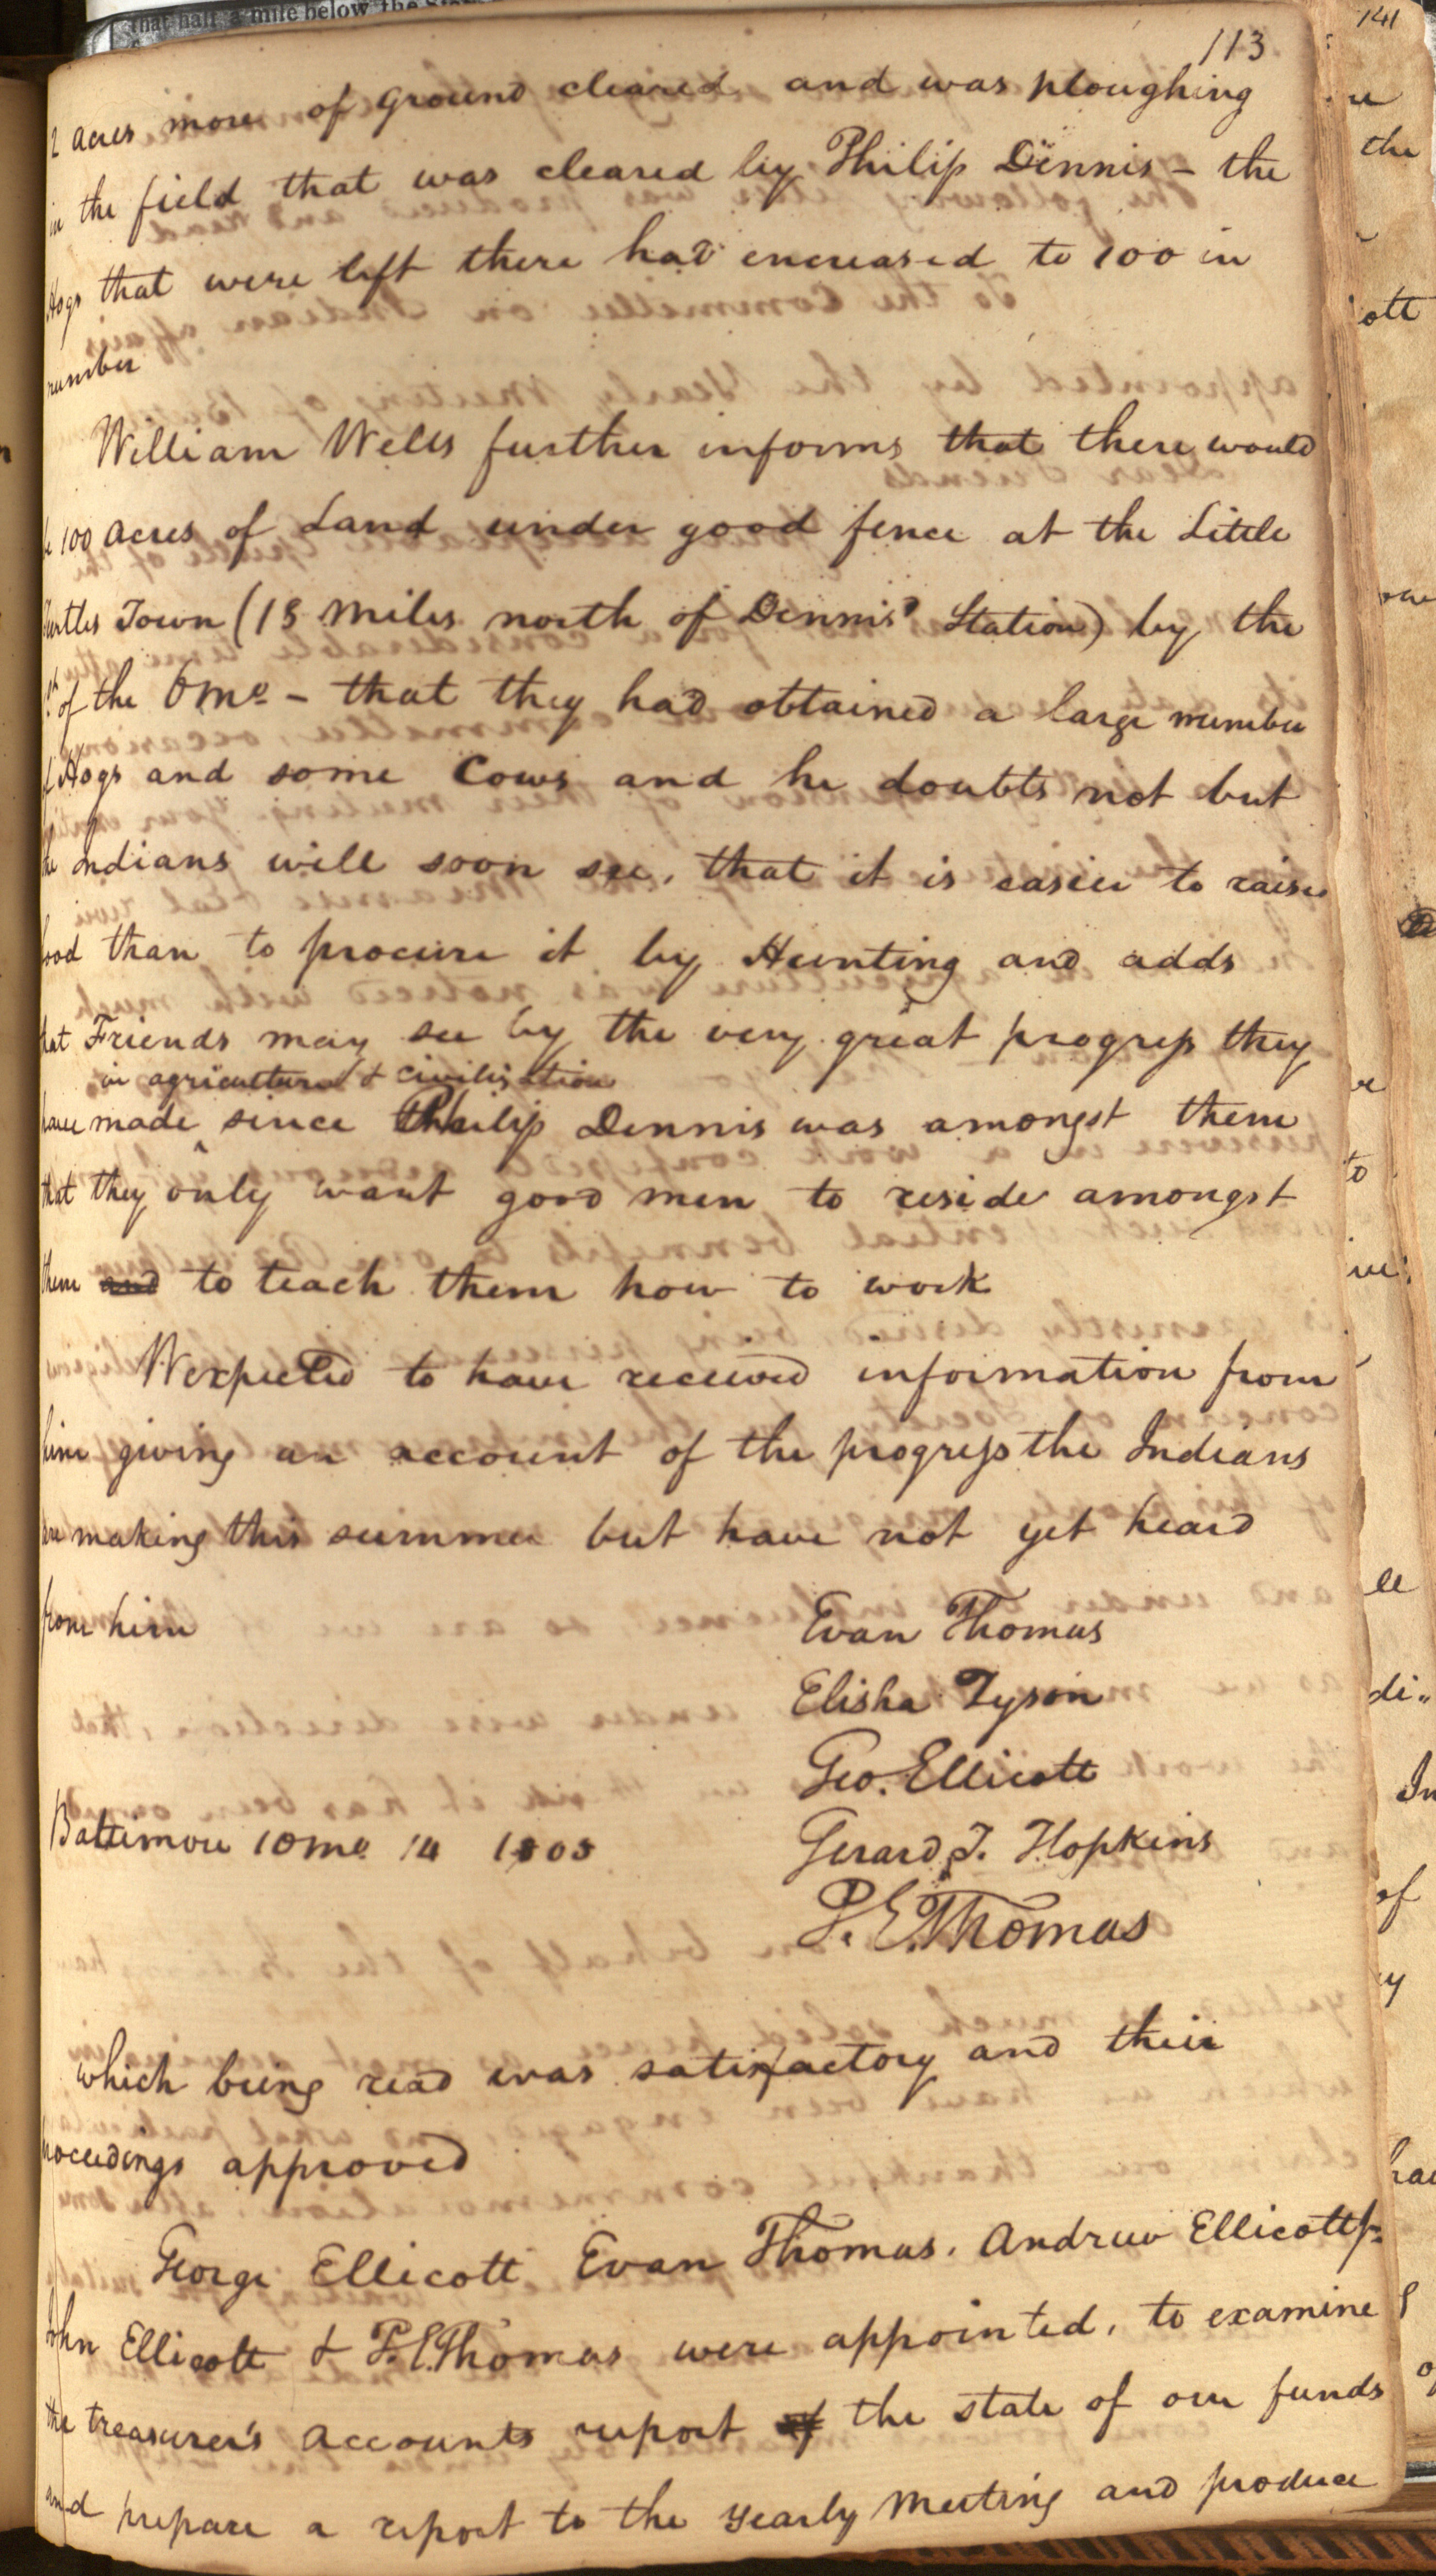 113
2 acres more of ground cleared and was ploughing
in the field that was cleared by Philip Dennis - the
Hogs that were left there had encreased to 100 in
number
William Wells further informs that there would
be 100 acres of Land under good fence at the Little
Turtles Town (18 miles north of Dennis' Station) by the
1st of the 6mo - that they had obtained a large number
of Hogs and some Cows and he doubts not but
the Indians will soon see, that it is easier to raise
food than to procure it by Hunting and adds
that Friends may see by the very great progress they
in agriculture & civilization
have made since Philip Dennis was amongst them
that they only want good men to reside amongst
them and to teach them how to work
We expected to have received information from
him giving an account of the progress the Indians
are making this summer but have not yet heard
from him
Evan Thomas
Elisha Tyson
Geo. Ellicott
Baltimore 10mo 14 1805
Gerard T. Hopkins
P. E. Thomas
which being read was satisfactory and their
proceedings approved
George Ellicott Evan Thomas. Andrew Ellicott jr
John Ellicott & P. E. Thomas were appointed, to examine
the treasurer's accounts report of the state of our funds
and prepare a report to the yearly Meeting and produce